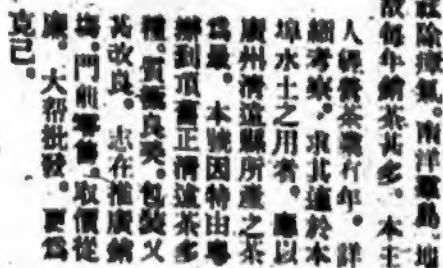 設除瘴氣。南洋羣島地
故每年銷茶甚多。本主
人經營茶業有年。詳
細考察。求其適於本
埠水土之用者。應以
廣州清遠縣所產之茶
爲最。本號因特由粤
辦到頂舊正清遠茶多
種。質極良美。包裝又
甚改良。志在推廣銷
塲。門難零售。取價從
廉。大帮批發。更爲
克己。